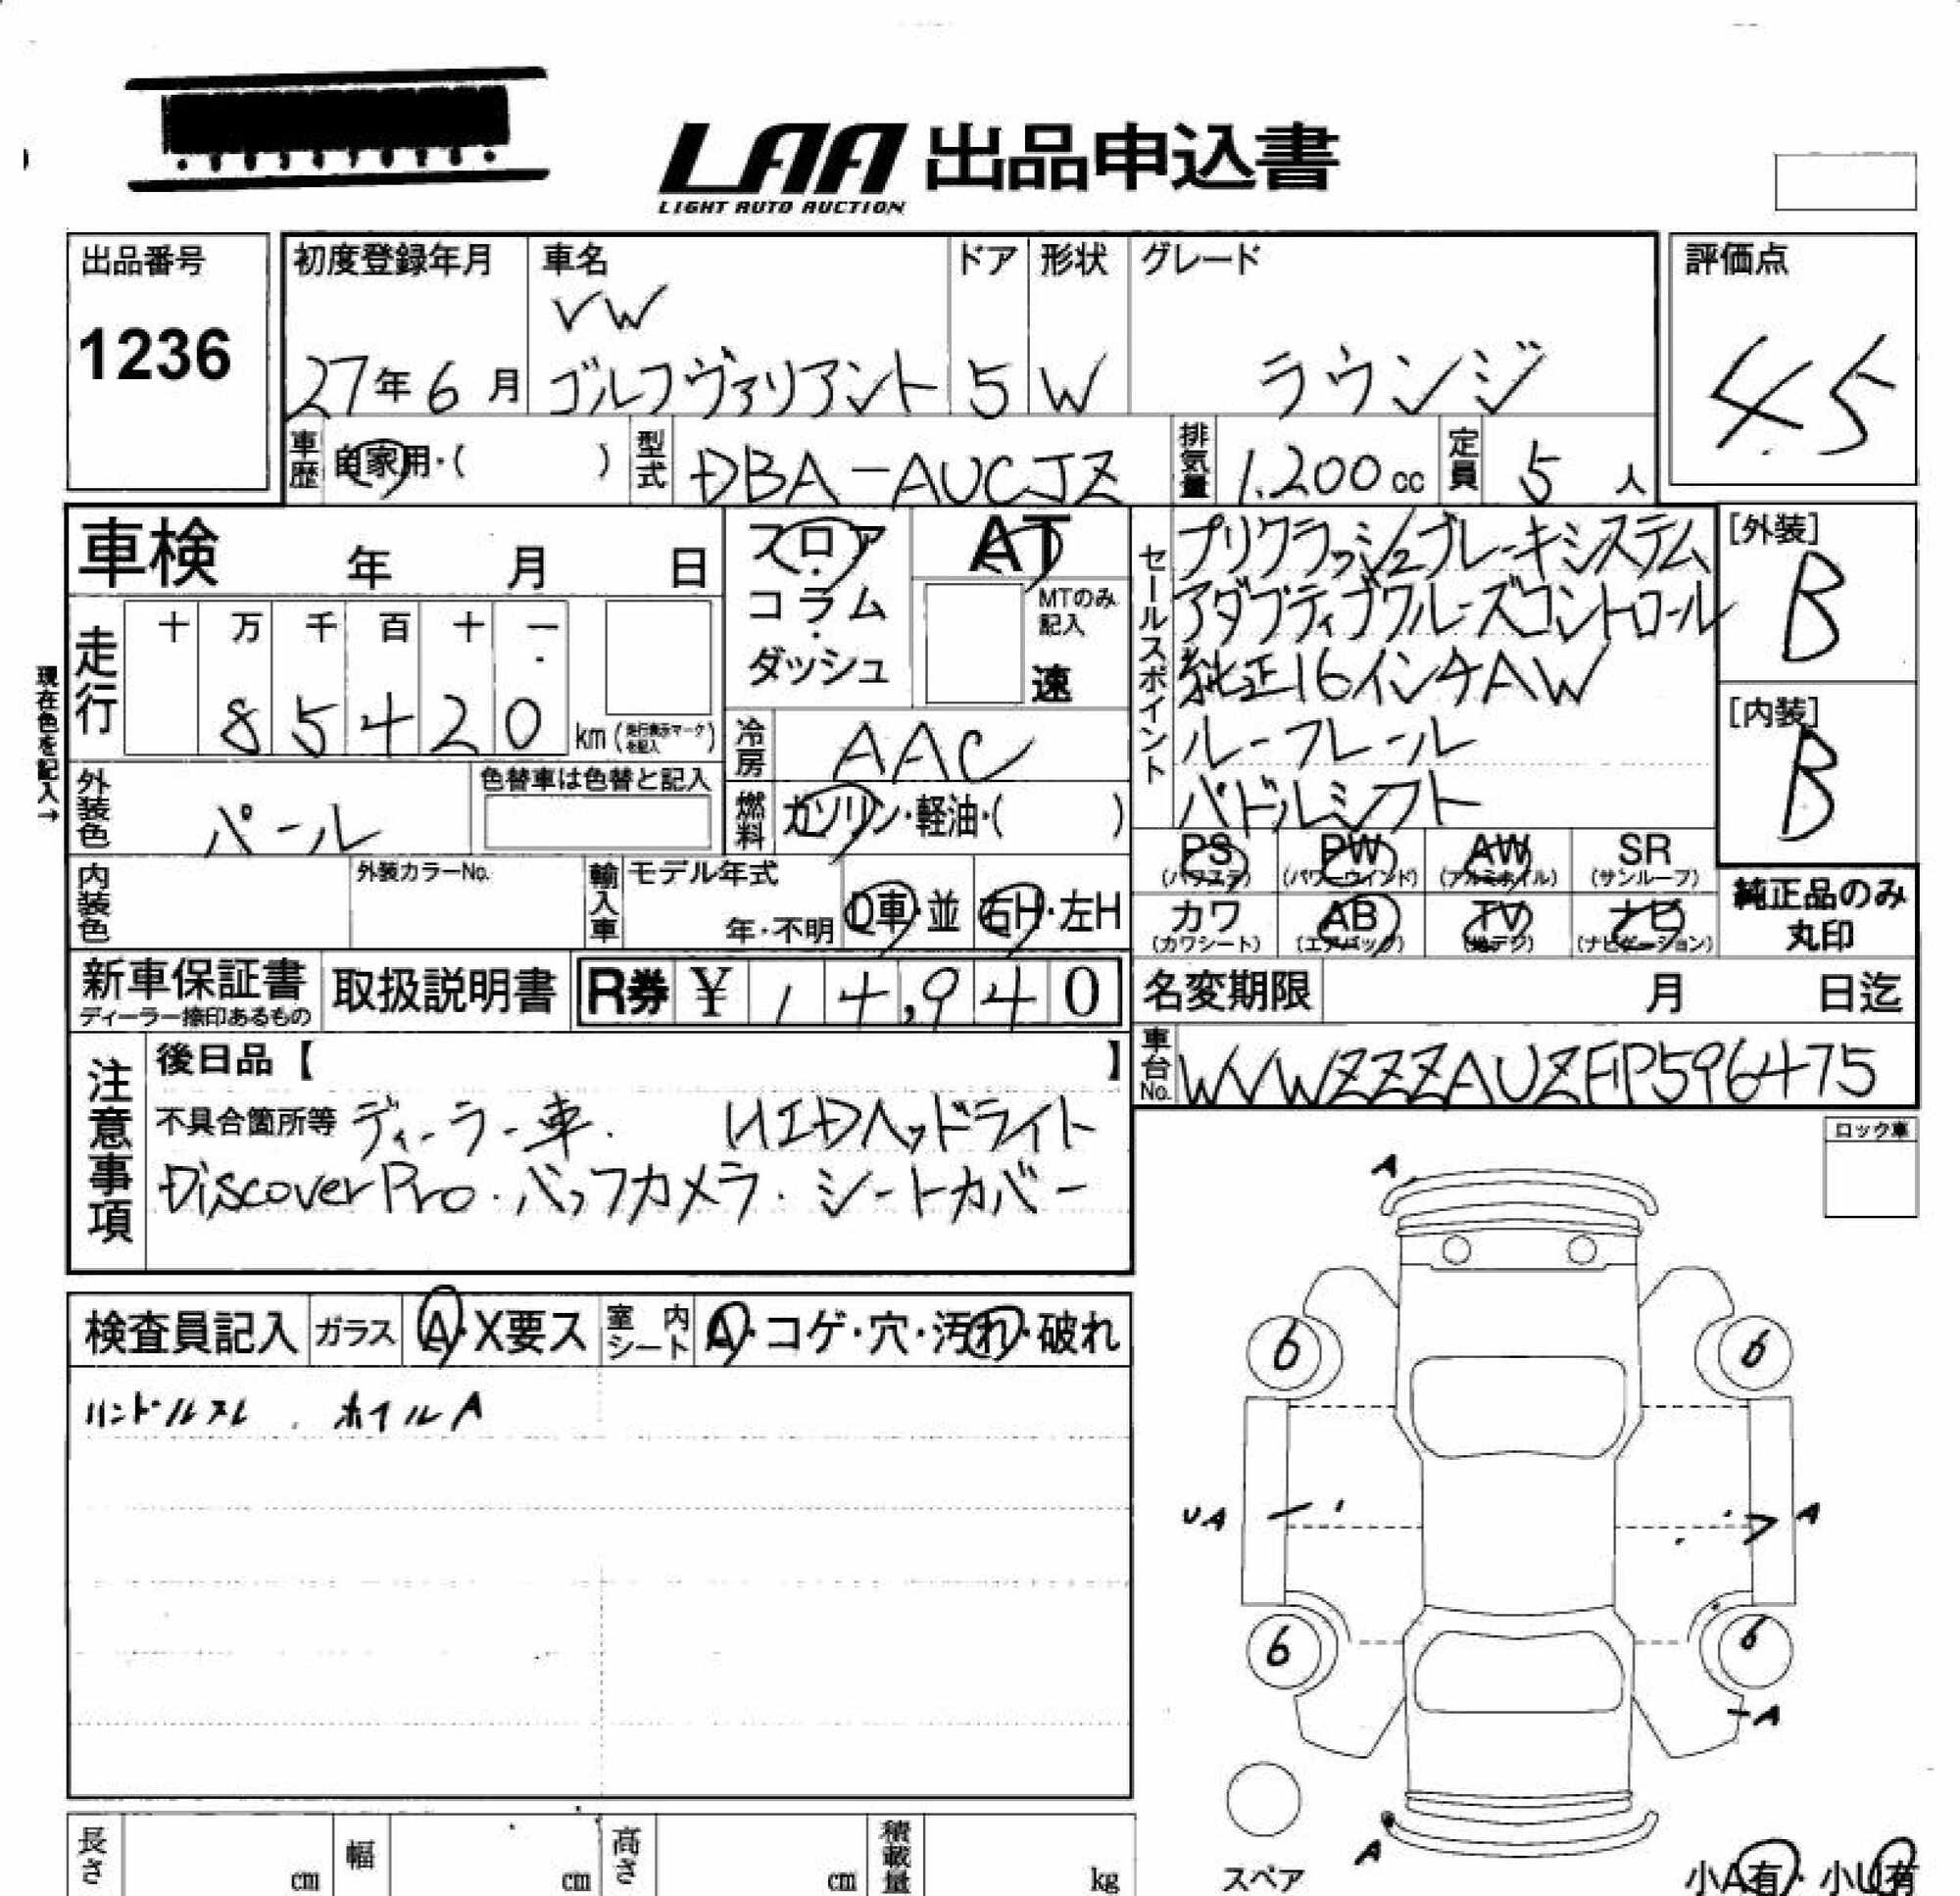 LAA 出品申込書
LIGHT AUTO AUCTION
出品番号
1236
初度登録年月
27年6月
車名
VW
ゴルフヴァリアント
ドア
5
形状
W
グレード
ラウンジ
評価点
4.5
車歴
自家用・( )
型式
DBA-AUCJZ
排気量
1.200cc
定員
5人
車検 年 月 日
現在色を記入→
走行
十 万 千 百 十 一
8 5 4 2 0 km(走行表示マークを記入)
フロア
・
コラム
・
ダッシュ
AT
MTのみ
記入
速
冷房
AAC
燃料
ガソリン・軽油・( )
セールスポイント
プリクラッシュブレーキシステム
アダプティブクルーズコントロール
純正16インチAW
ルーフレール
パドルシフト
[外装]
B
[内装]
B
外装色
パール
色替車は色替と記入
内装色
外装カラーNo.
輸入車
モデル年式
年・不明
D車・並
右H・左H
PS
(パワステ)
PW
(パワーウインド)
AW
(アルミホイル)
SR
(サンルーフ)
カワ
(カワシート)
AB
(エアバック)
TV
(地デジ)
ナビ
(ナビゲーション)
純正品のみ
丸印
新車保証書
ディーラー捺印あるもの
取扱説明書
R券 ¥ 14,940
名変期限 月 日迄
車台No.
WVWZZZAUZFP596475
注意事項
後日品【 】
不具合箇所等 ディーラー車. HIDヘッドライト
Discover Pro・バックカメラ・シートカバー
ロック車
検査員記入
ガラス
A・X要ス
室内シート
A・コゲ・穴・汚れ・破れ
ハンドルスレ . ホイルA
A
6
6
UA
A
6
6
A
A
スペア
小A有・小U有
長さ cm
幅 cm
高さ cm
積載量 kg